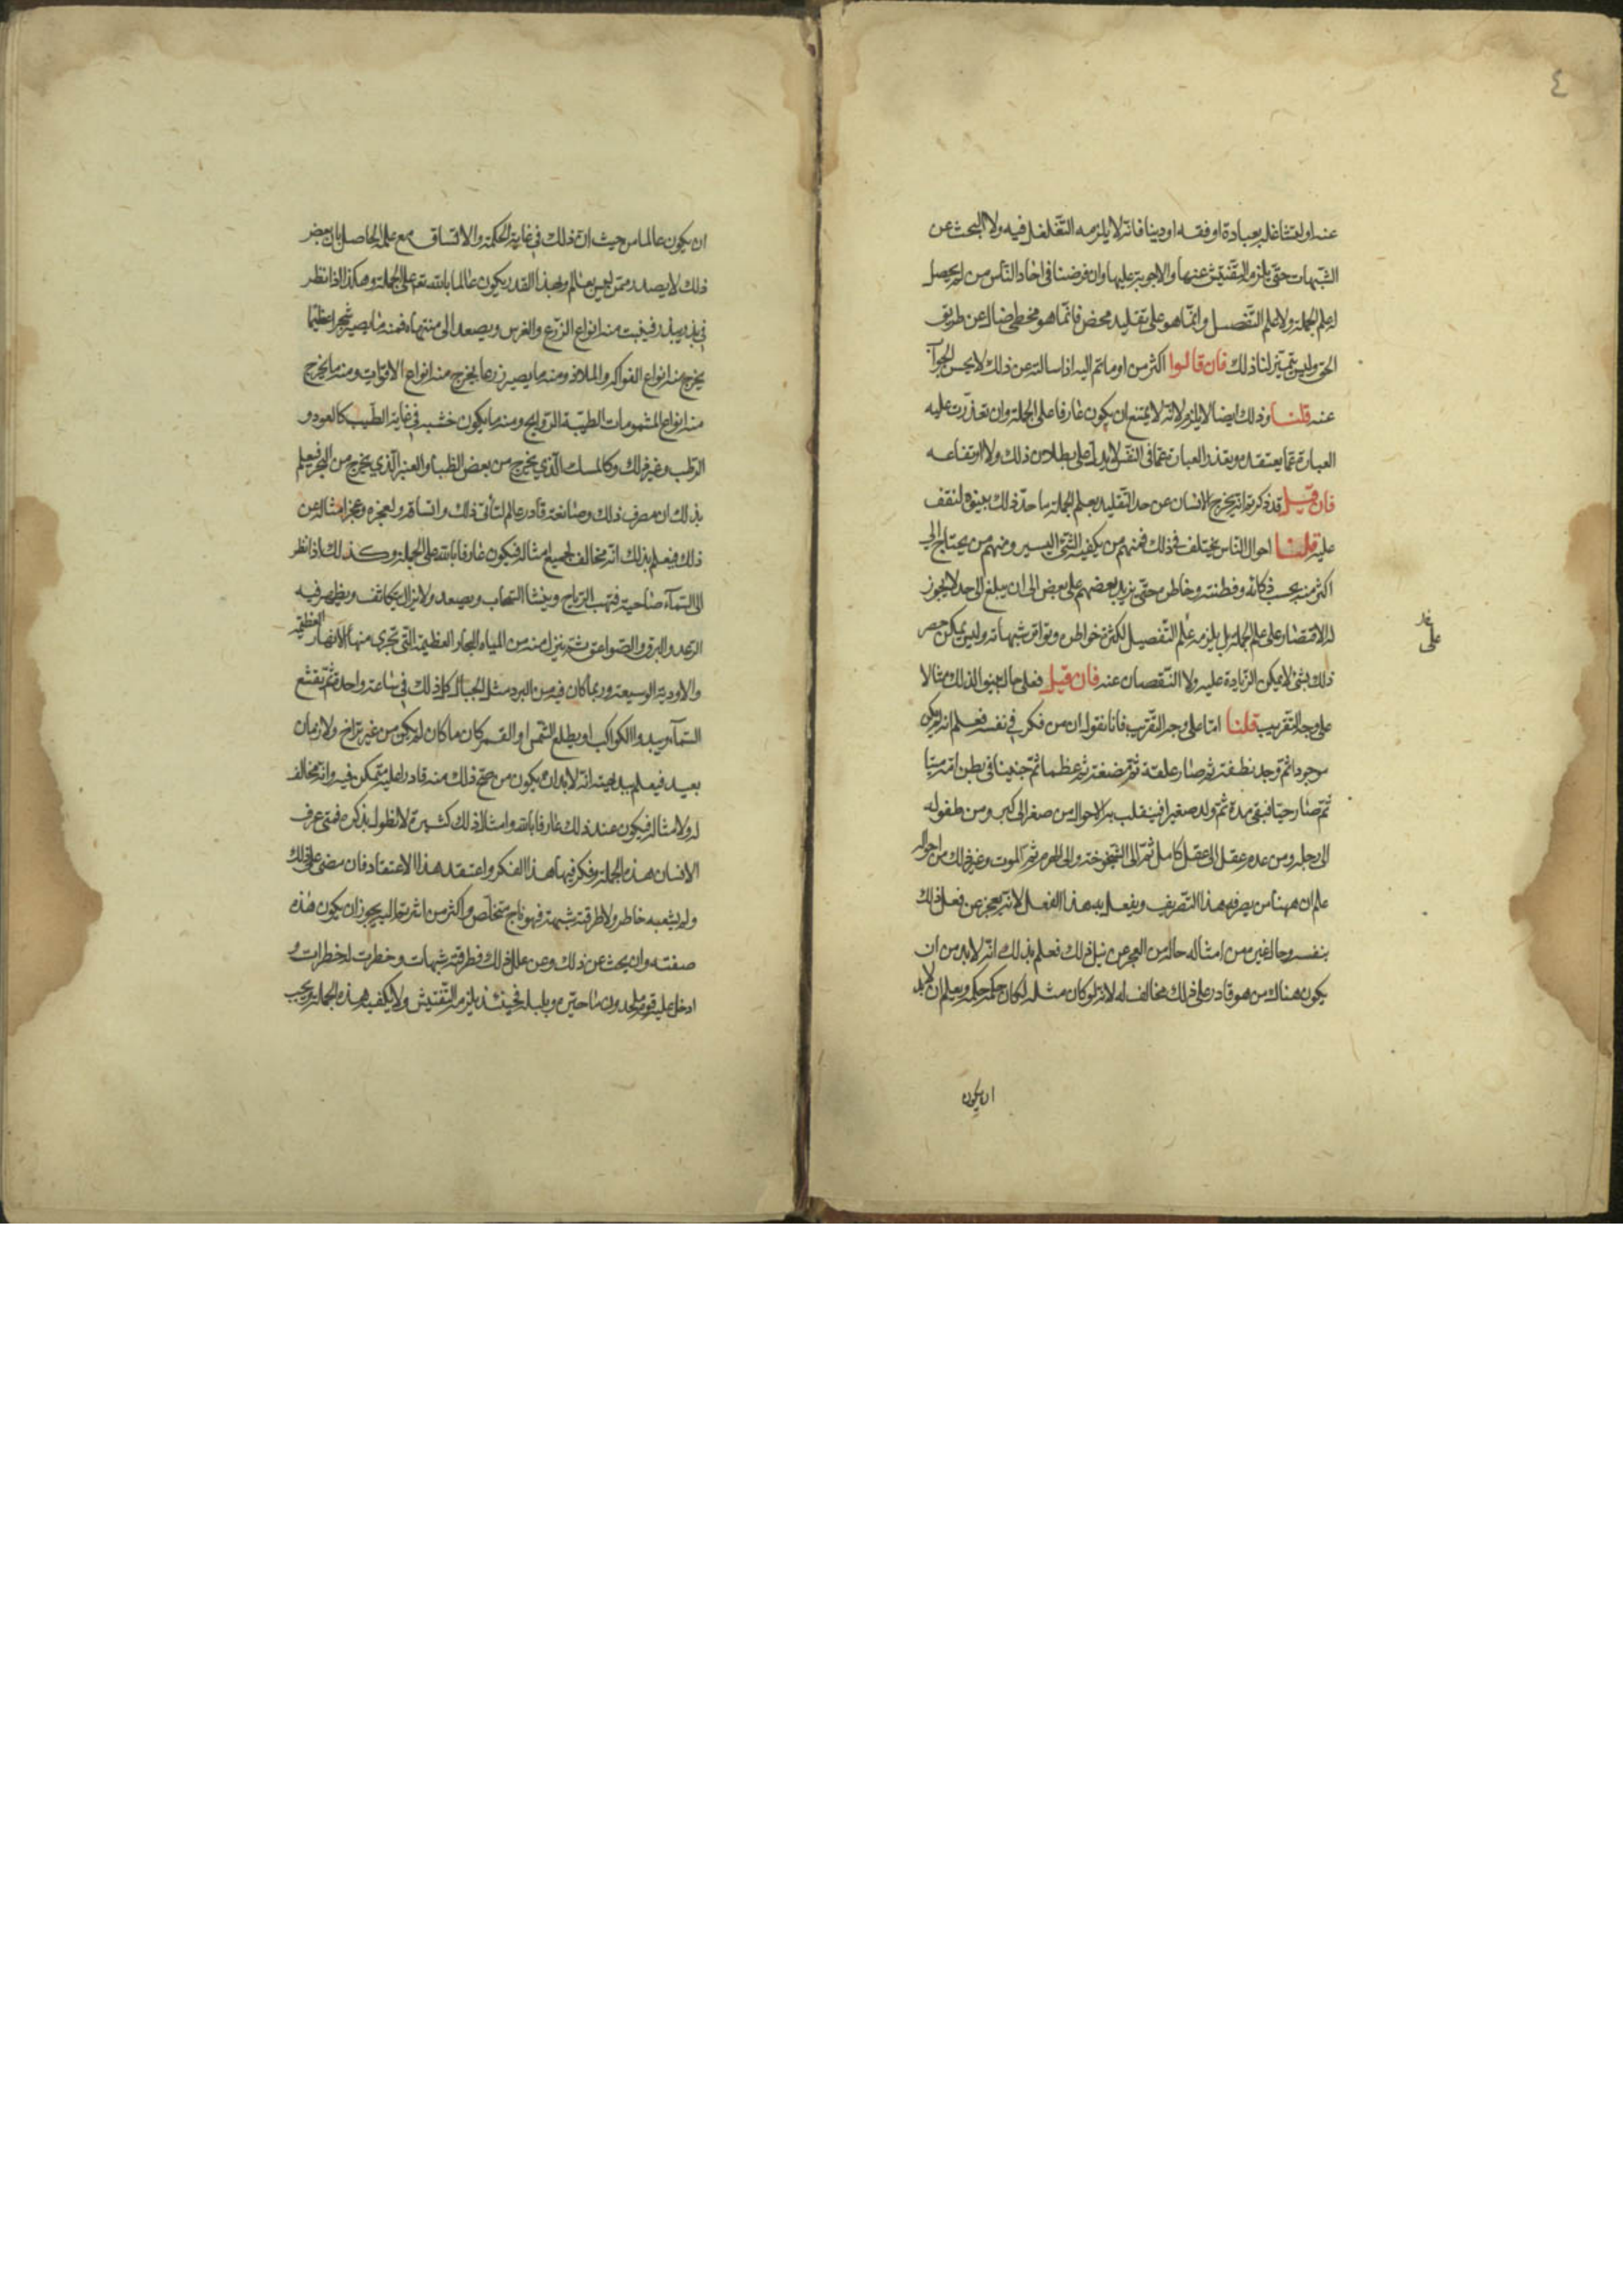 ٤
عنه او لتشاغله بعبادة او فقه او دينا فانه لا يلزمه التغلغل فيه ولا البحث عن
الشبهات حتى يلزم التفتيش عنها والاجوبة عليها وان فرضنا في احاد الناس من لم يحصل
له علم الجملة ولا علم التفصيل وانما هو على تقليد محض فانما هو مخطئ ضال عن طريق
الحق وليس يتميز لنا ذلك فان قالوا اكثر من اومأتم اليه اذا سالته عن ذلك لا يحسن الجواب
عنه قلنا وذلك ايضا لا يلزم لانه لا يمتنع ان يكون عارفا على الجملة وان تعذرت عليه
العبارة عما يعتقده وتعذر العبارة عما في النفس لا يدل على بطلان ذلك ولا ارتفاعه
فان قيل قد ذكرتم انه يخرج الانسان عن حد التقليد بعلم الجملة ما حد ذلك بينوه لنقف
عليه قلنا احوال الناس يختلف في ذلك فمنهم من يكفيه الشئ اليسير ومنهم من يحتاج الى
اكثر منه بحسب ذكائه وفطنته وخاطره حتى يزيد بعضهم على بعض الى ان يبلغ الى حد لا يجوز
له الاقتصار على علم الجملة بل يلزمه علم التفصيل لكثرة خواطره وتواتر شبهاته وليس يمكن حصر
على
ذلك بشئ لا يمكن الزيادة عليه ولا النقصان عنه فان قيل فعلى حال بينوا لذلك مثالا
على وجه التقريب قلنا اما على وجه التقريب فانا نقول ان من فكر في نفسه فعلم انه لم يكن
موجودا ثم وجد نطفة ثم صار علقة ثم مضغة ثم عظما ثم جنينا في بطن امه ميتا
ثم صار حيا فبقى مدة ثم ولد صغيرا فينقلب به الاحوال من صغر الى كبر ومن طفوله
الى رجله ومن عدم عقل الى عقل كامل ثم الى الشيخوخة والى الهرم ثم الموت وغير ذلك من احواله
علم ان ههنا من يصرفه هذا التصريف ويفعل به هذا الفعل لانه يعجز عن فعل ذلك
بنفسه وحال غيره من امثاله حاله من العجز عن نيل ذلك فعلم بذلك انه لا بد من ان
يكون هناك من هو قادر على ذلك مخالف له لانه لو كان مثله لكان حكمه حكمه ويعلم ان لابد
ان يكون
ان يكون عالما من حيث ان ذلك في غاية الحكمة والاتساق مع علمه الحاصل بان بعض
ذلك لا يصدر ممن ليس بعالم وبهذا القدر يكون عالما بالله تع على الجملة وهكذا اذا نظر
في بذر يبذر فينبت منه انواع الزرع والغرس ويصعد الى منتهاه فمنه ما يصير شجرا عظيما
يخرج منه انواع الفواكه والملاذ ومنه ما يصير زرعا يخرج منه انواع الاقوات ومنه ما يخرج
منه انواع المشمومات الطيبة الروايح ومنه ما يكون خشبه في غاية الطيب كالعود و
الرطب وغير ذلك وكالمسك الذي يخرج من بعض الظباء والعنبر الذي يخرج من البحر فيعلم
بذلك ان مصرف ذلك وصانعه قادر عالم لتأتي ذلك واتساقه ولعجزه وعجز امثاله عن
ذلك فيعلم بذلك انه مخالف لجميع امثاله فيكون عارفا بالله على الجملة وكذلك اذا نظر
الى السماء صاحية فتهب الرياح وينشأ السحاب ويصعد ولا يزال يتكاثف ويظهر فيه
الرعد والبرق والصواعق ثم ينزل منه من المياه البحار العظيمة التي تجرى منها الانهار العظيمة
والاودية الوسيعة وربما كان فيه من البرد مثل الجبال كل ذلك في ساعة واحدة ثم يتقشع
السماء ويبدوا الكواكب او يطلع الشمس او القمر كان ما كان لم يكن من غير تراخ ولا زمان
بعيد فيعلم ببديهته انه لابد ان يكون من صح ذلك منه قادرا عليه متمكن فيه وانه مخالف
له ولامثاله فيكون عند ذلك عارفا بالله وامثال ذلك كثيرة لا نطول بذكره فمتى عرف
الانسان هذه الجملة وفكر فيها هذا الفكر واعتقد هذا الاعتقاد فان مضى على ذلك
ولم يشعبه خاطر ولا طرقته شبهة فهو ناج متخلص واكثر من اشرتم اليه يجوز ان يكون هذه
صفته وان بحث عن ذلك وعن علل ذلك فطرقته شبهات وخطرت له خطرات و
ادخل عليه قوم ملحدون ما حيره وبلبله فحينئذ يلزمه التفتيش ولا يكفيه هذه الجملة ويجب